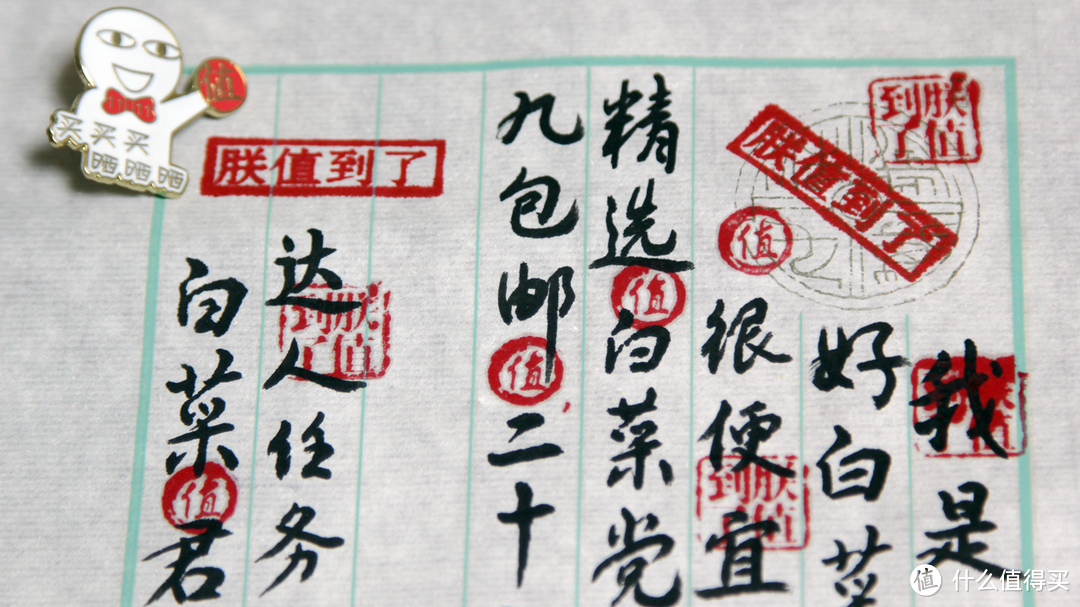 我是
好白菜
很便宜
精选白菜党
九包邮二十
达人任务
白菜君
朕值到了
朕值到了
朕值到了
朕值到了
朕值到了
值
值
值
值
值
买买买
晒晒晒
值 什么值得买